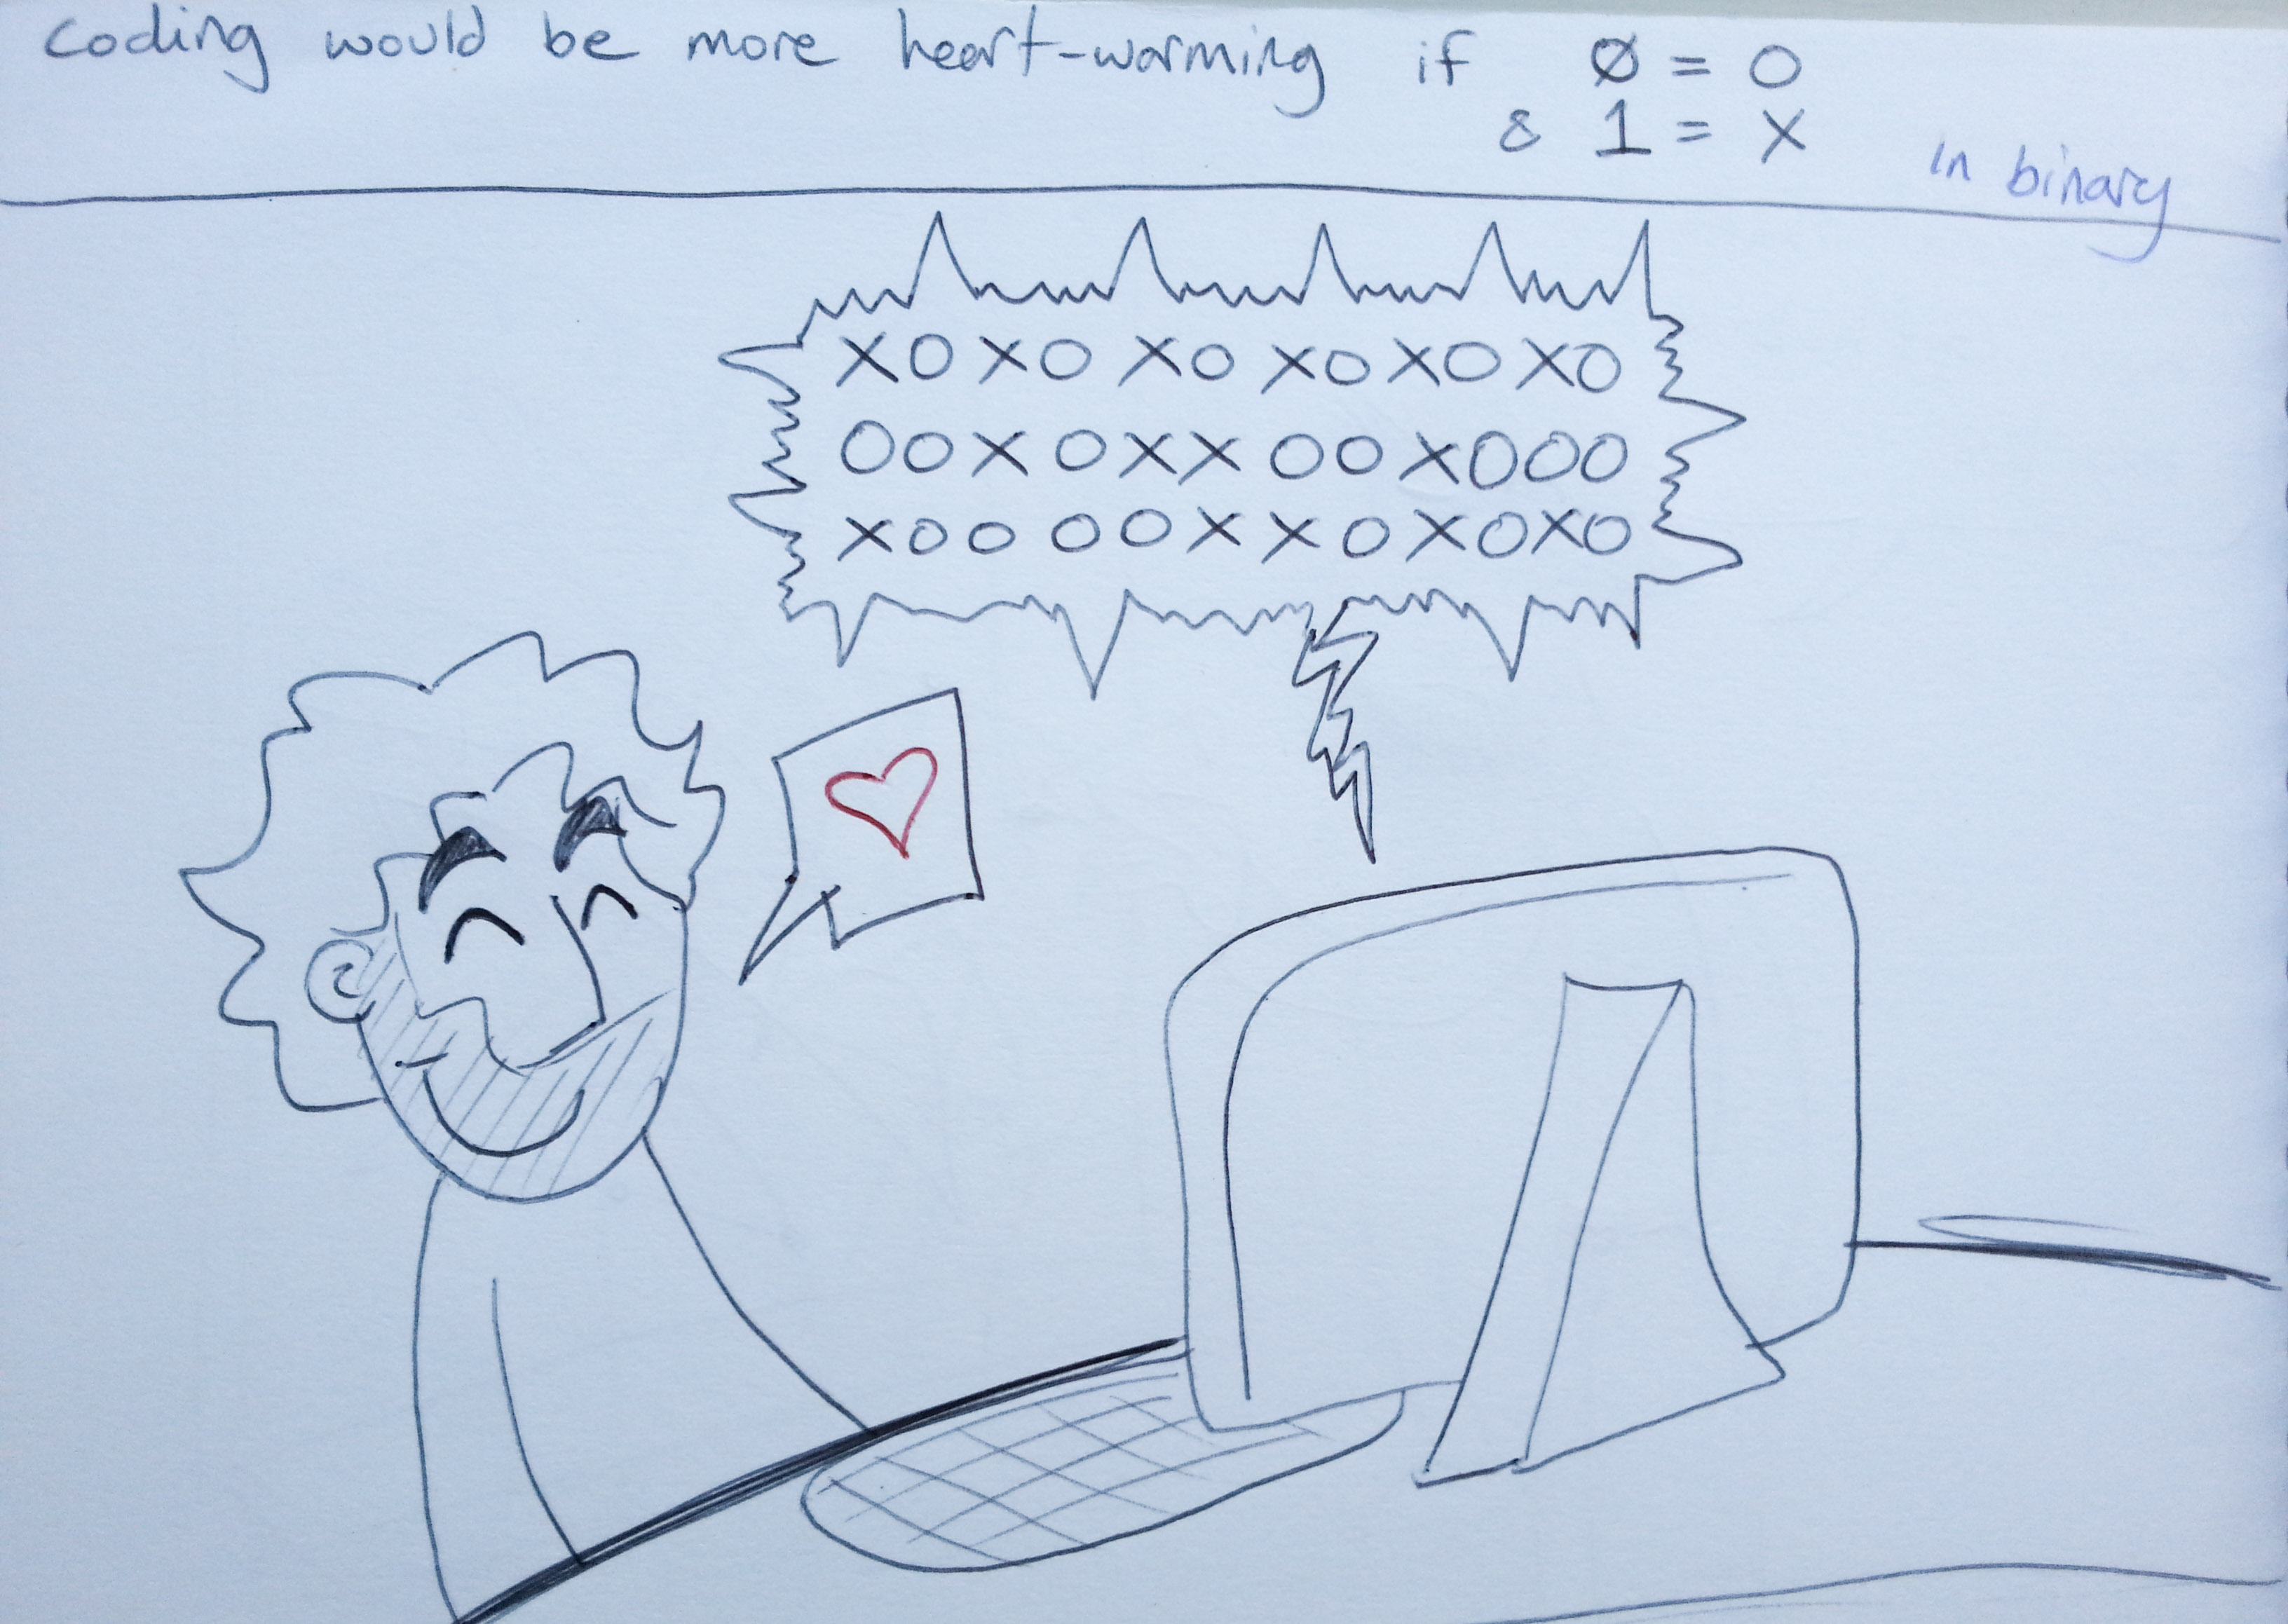 Coding would be more heart-warming if Ø = O
& 1 = X
in binary
XOXOXOXOXOXO
OOXOXXOOXOOO
XOOOOXXOXOXO